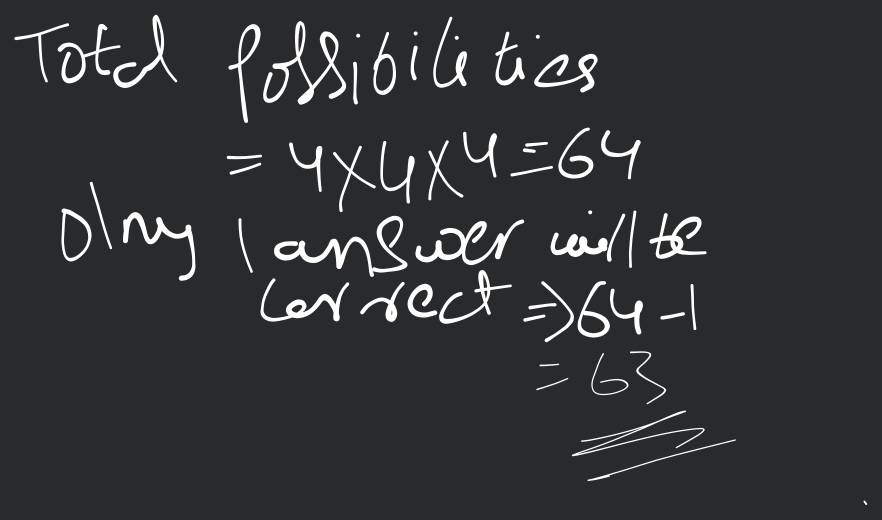 Total Possibilities
= 4×4×4=64
Olny 1 answer will be
correct ⇒64-1
= 63